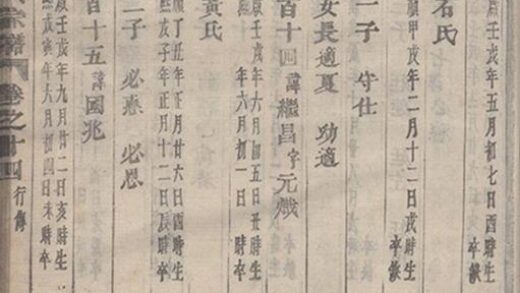 石氏
康壬戌年五月初七日酉時生
順甲戌年二月十二日戌時卒
一子 守仕
女長適夏 功適
百十四諱繼昌字元熾
康壬戌年六月初五日丑時生
年六月初一日 時卒
黃氏
順丁丑年正月廿六日酉時生
熙戊子年正月十二日辰時卒
二子 必 必恩
百十五諱國兆
壬戌年九月廿二日亥時生
熙戊寅年六月初四日未時卒
氏宗譜 卷之十四 行傳